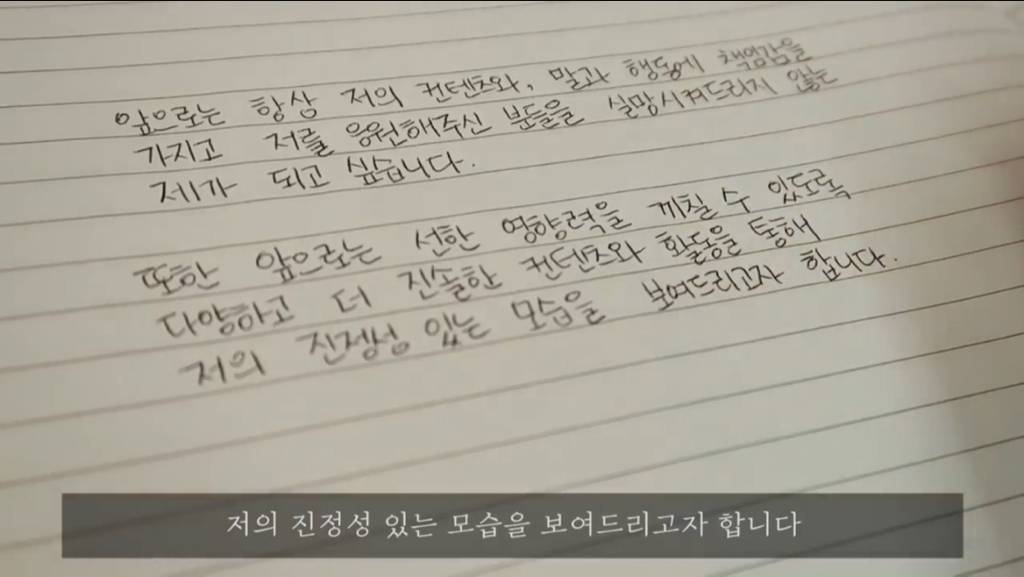 앞으로는 항상 저의 컨텐츠와, 말과 행동에 책임감을
가지고 저를 응원해주신 분들을 실망시켜드리지 않는
제가 되고 싶습니다.
또한 앞으로는 선한 영향력을 끼칠 수 있도록
다양하고 더 진솔한 컨텐츠와 활동을 통해
저의 진정성 있는 모습을 보여드리고자 합니다.
저의 진정성 있는 모습을 보여드리고자 합니다